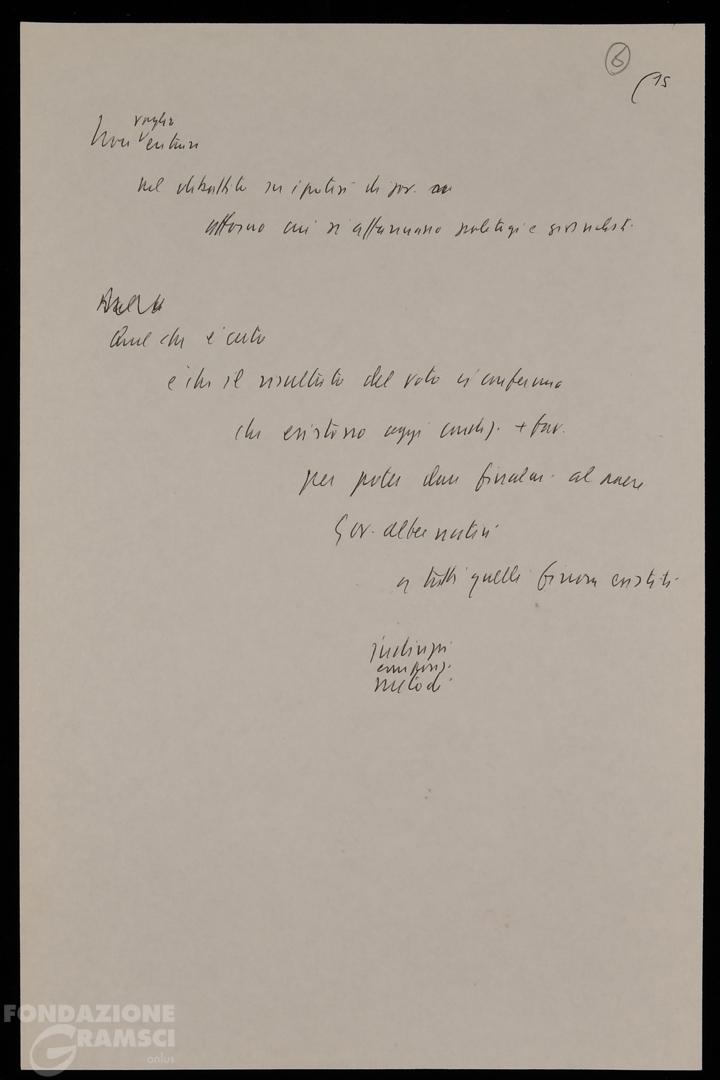 6
15
voglio
Non entrare
nel dibattito su ipotesi di gov.
attorno cui si affannano politici e giornalisti
Quel che è certo
è che il risultato del voto ci conferma
che esistono oggi condiz. + fav.
per poter dare finalm. al paese
Gov. alternativi
a tutti quelli finora esistiti
indirizzi
composiz.
metodi
FONDAZIONE
GRAMSCI
onlus